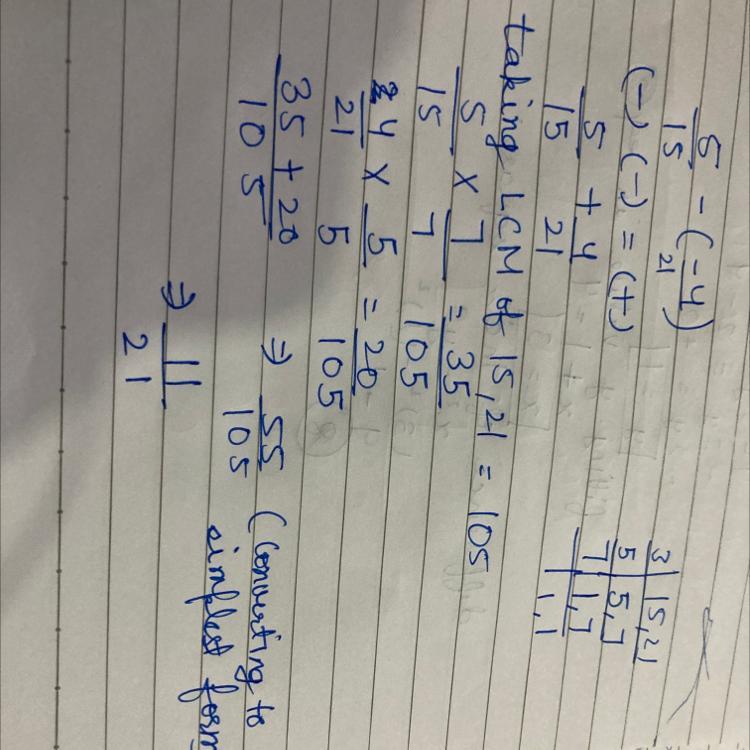 5/15 - (-4/21)
(-) (-) = (+)
5/15 + 4/21
taking LCM of 15,21 = 105
5/15 x 7/7 = 35/105
4/21 x 5/5 = 20/105
35 + 20/105 ⇒ 55/105 (Converting to
simplest form
⇒ 11/21
3 | 15,21
5 | 5,7
7 | 1,7
1,1